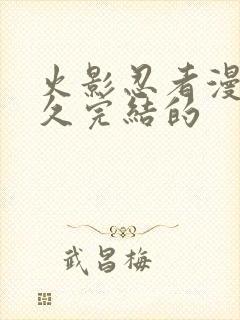 火影忍者漫
久完結的
武昌梅